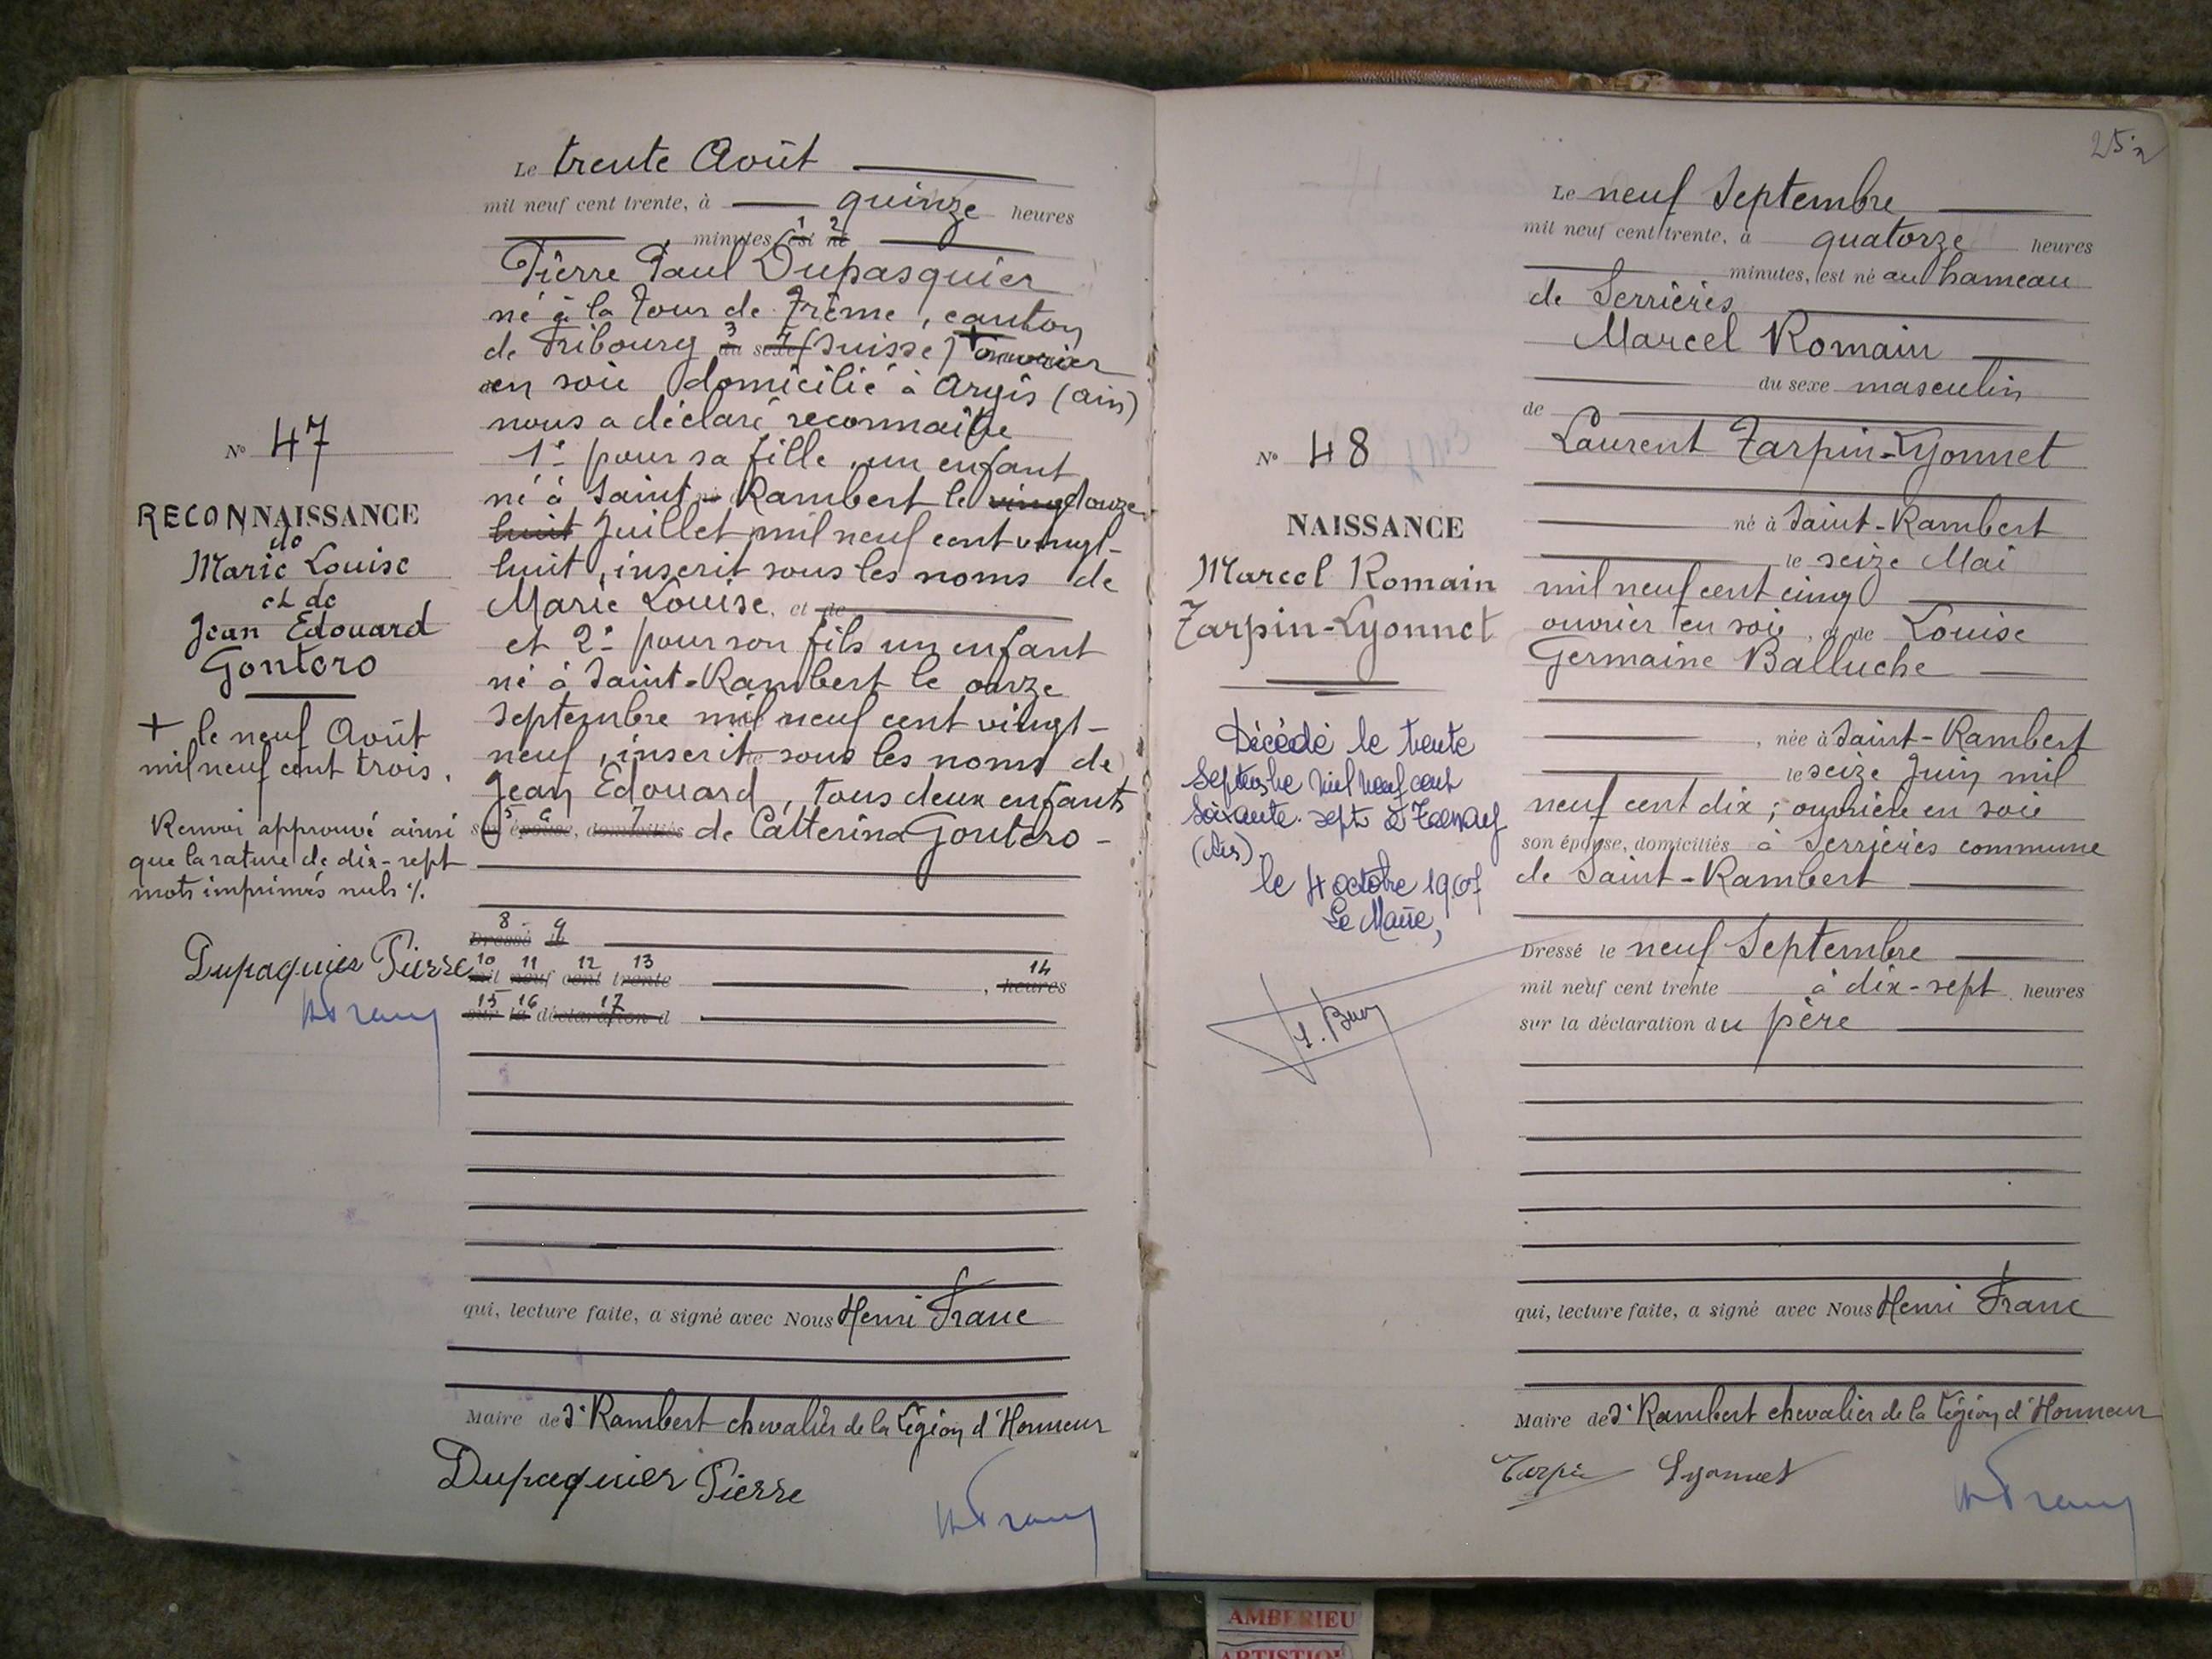 Le trente Août
mil neuf cent trente, à quinze heures
minutes, est né
1 2
Pierre Paul Dupasquier
né à la Tour de Trême, canton
de Fribourg du sexe (Suisse) + ouvrier
3 4
en soie domicilié à Argis (ain)
nous a déclaré reconnaître
1° pour sa fille, un enfant
né à Saint-Rambert le vingt douze
huit Juillet mil neuf cent vingt-
huit, inscrit sous les noms de
Marie Louise, et de
et 2° pour son fils un enfant
né à Saint-Rambert le onze
septembre mil neuf cent vingt-
neuf, inscrit sous les noms de
Jean Edouard, tous deux enfants
5 6 7
son épouse, domiciliés de Catterina Gontero -
8 9
Dressé le
10 11 12 13 14
mil neuf cent trente , heures
15 16 17
sur la déclaration d
qui, lecture faite, a signé avec Nous Henri Franc
Maire de St Rambert chevalier de la Légion d'Honneur
Dupaquier Pierre
HFranc
N° 47
RECONNAISSANCE
de
Marie Louise
et de
Jean Edouard
Gontero
+ le neuf Août
mil neuf cent trois.
Renvoi approuvé ainsi
que la rature de dix-sept
mots imprimés nuls %.
Dupaquier Pierre
HFranc
Le neuf Septembre
mil neuf cent trente, à quatorze heures
minutes, est né au hameau
de Serrières
Marcel Romain
du sexe masculin
de
Laurent Tarpin-Lyonnet
né à Saint-Rambert
le seize Mai
mil neuf cent cinq
ouvrier en soie, et de Louise
Germaine Balluche
, née à Saint-Rambert
le seize Juin mil
neuf cent dix; ouvrière en soie
son épouse, domiciliés à Serrières commune
de Saint-Rambert
Dressé le neuf Septembre
mil neuf cent trente à dix-sept heures
sur la déclaration du père
qui, lecture faite, a signé avec Nous Henri Franc
Maire de St Rambert chevalier de la Légion d'Honneur
Tarpin Lyonnet
HFranc
N° 48
NAISSANCE
Marcel Romain
Tarpin-Lyonnet
Décédé le trente
Septembre mil neuf cent
soixante-sept à Tenay
(Ain).
le 4 octobre 1967
Le Maire,
AMBERIEU